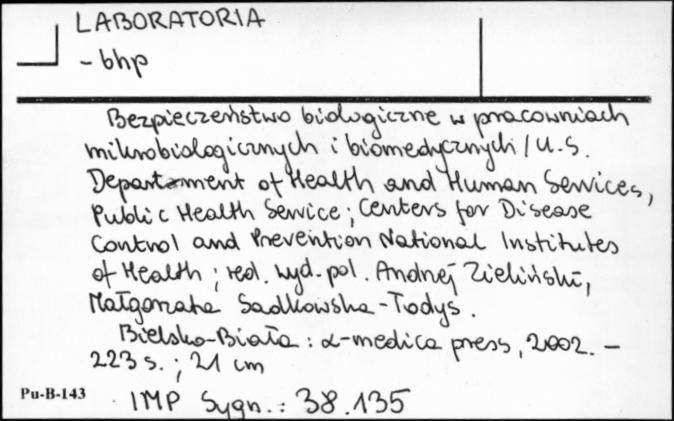 LABORATORIA
- bhp
Bezpieczeństwo biologiczne w pracowniach
mikrobiologicznych i biomedycznych / U.S.
Departament of Health and Human Services,
Public Health Service ; Centers for Disease
Control and Prevention National Institutes
of Health ; red. wyd. pol. Andrzej Zieliński,
Małgorzata Sadkowska-Todys.
Bielsko-Biała : α-medica press, 2002. –
223 s. ; 21 cm
Pu-B-143
IMP Sygn. : 38.135